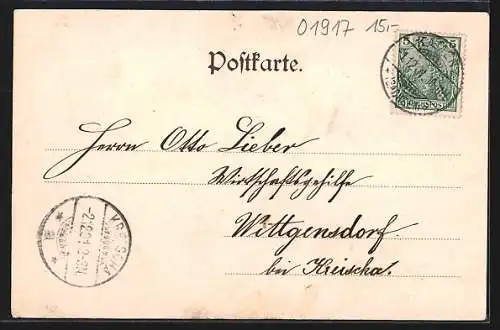 01917 15,-
Postkarte.
Herrn Otto Lieber
Wirtschaftsgehilfe
Wittgensdorf
bei Kreischa.
KREISCHA